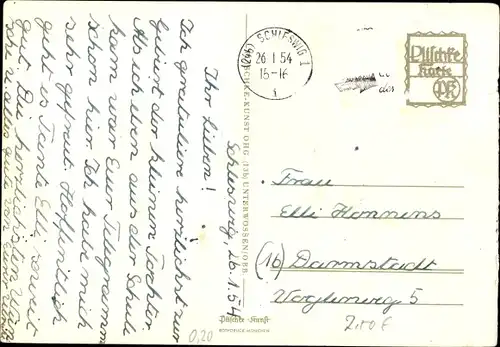 Schleswig, 26.1.54
Ihr Lieben!
Ich gratuliere herzlichst zur
Geburt der kleinen Tochter.
Als ich eben aus der Schule
kam war Euer Telegramm
schon hier. Ich habe mich
sehr gefreut. Hoffentlich
geht es Tante Elli, soweit
gut. Die herzlichsten
u. alles gute von Eurer
PLÜSCHKE-KUNST OHG (13b) UNTERWÖSSEN/OBB.
(24b) SCHLESWIG 1
26.1.54
15-16
i
Plüschke
Karte
PK
Frau
Elli Konnens
(16) Darmstadt
Voglerweg 5
Plüschke Kunst
ROTHDRUCK MÜNCHEN
0,20